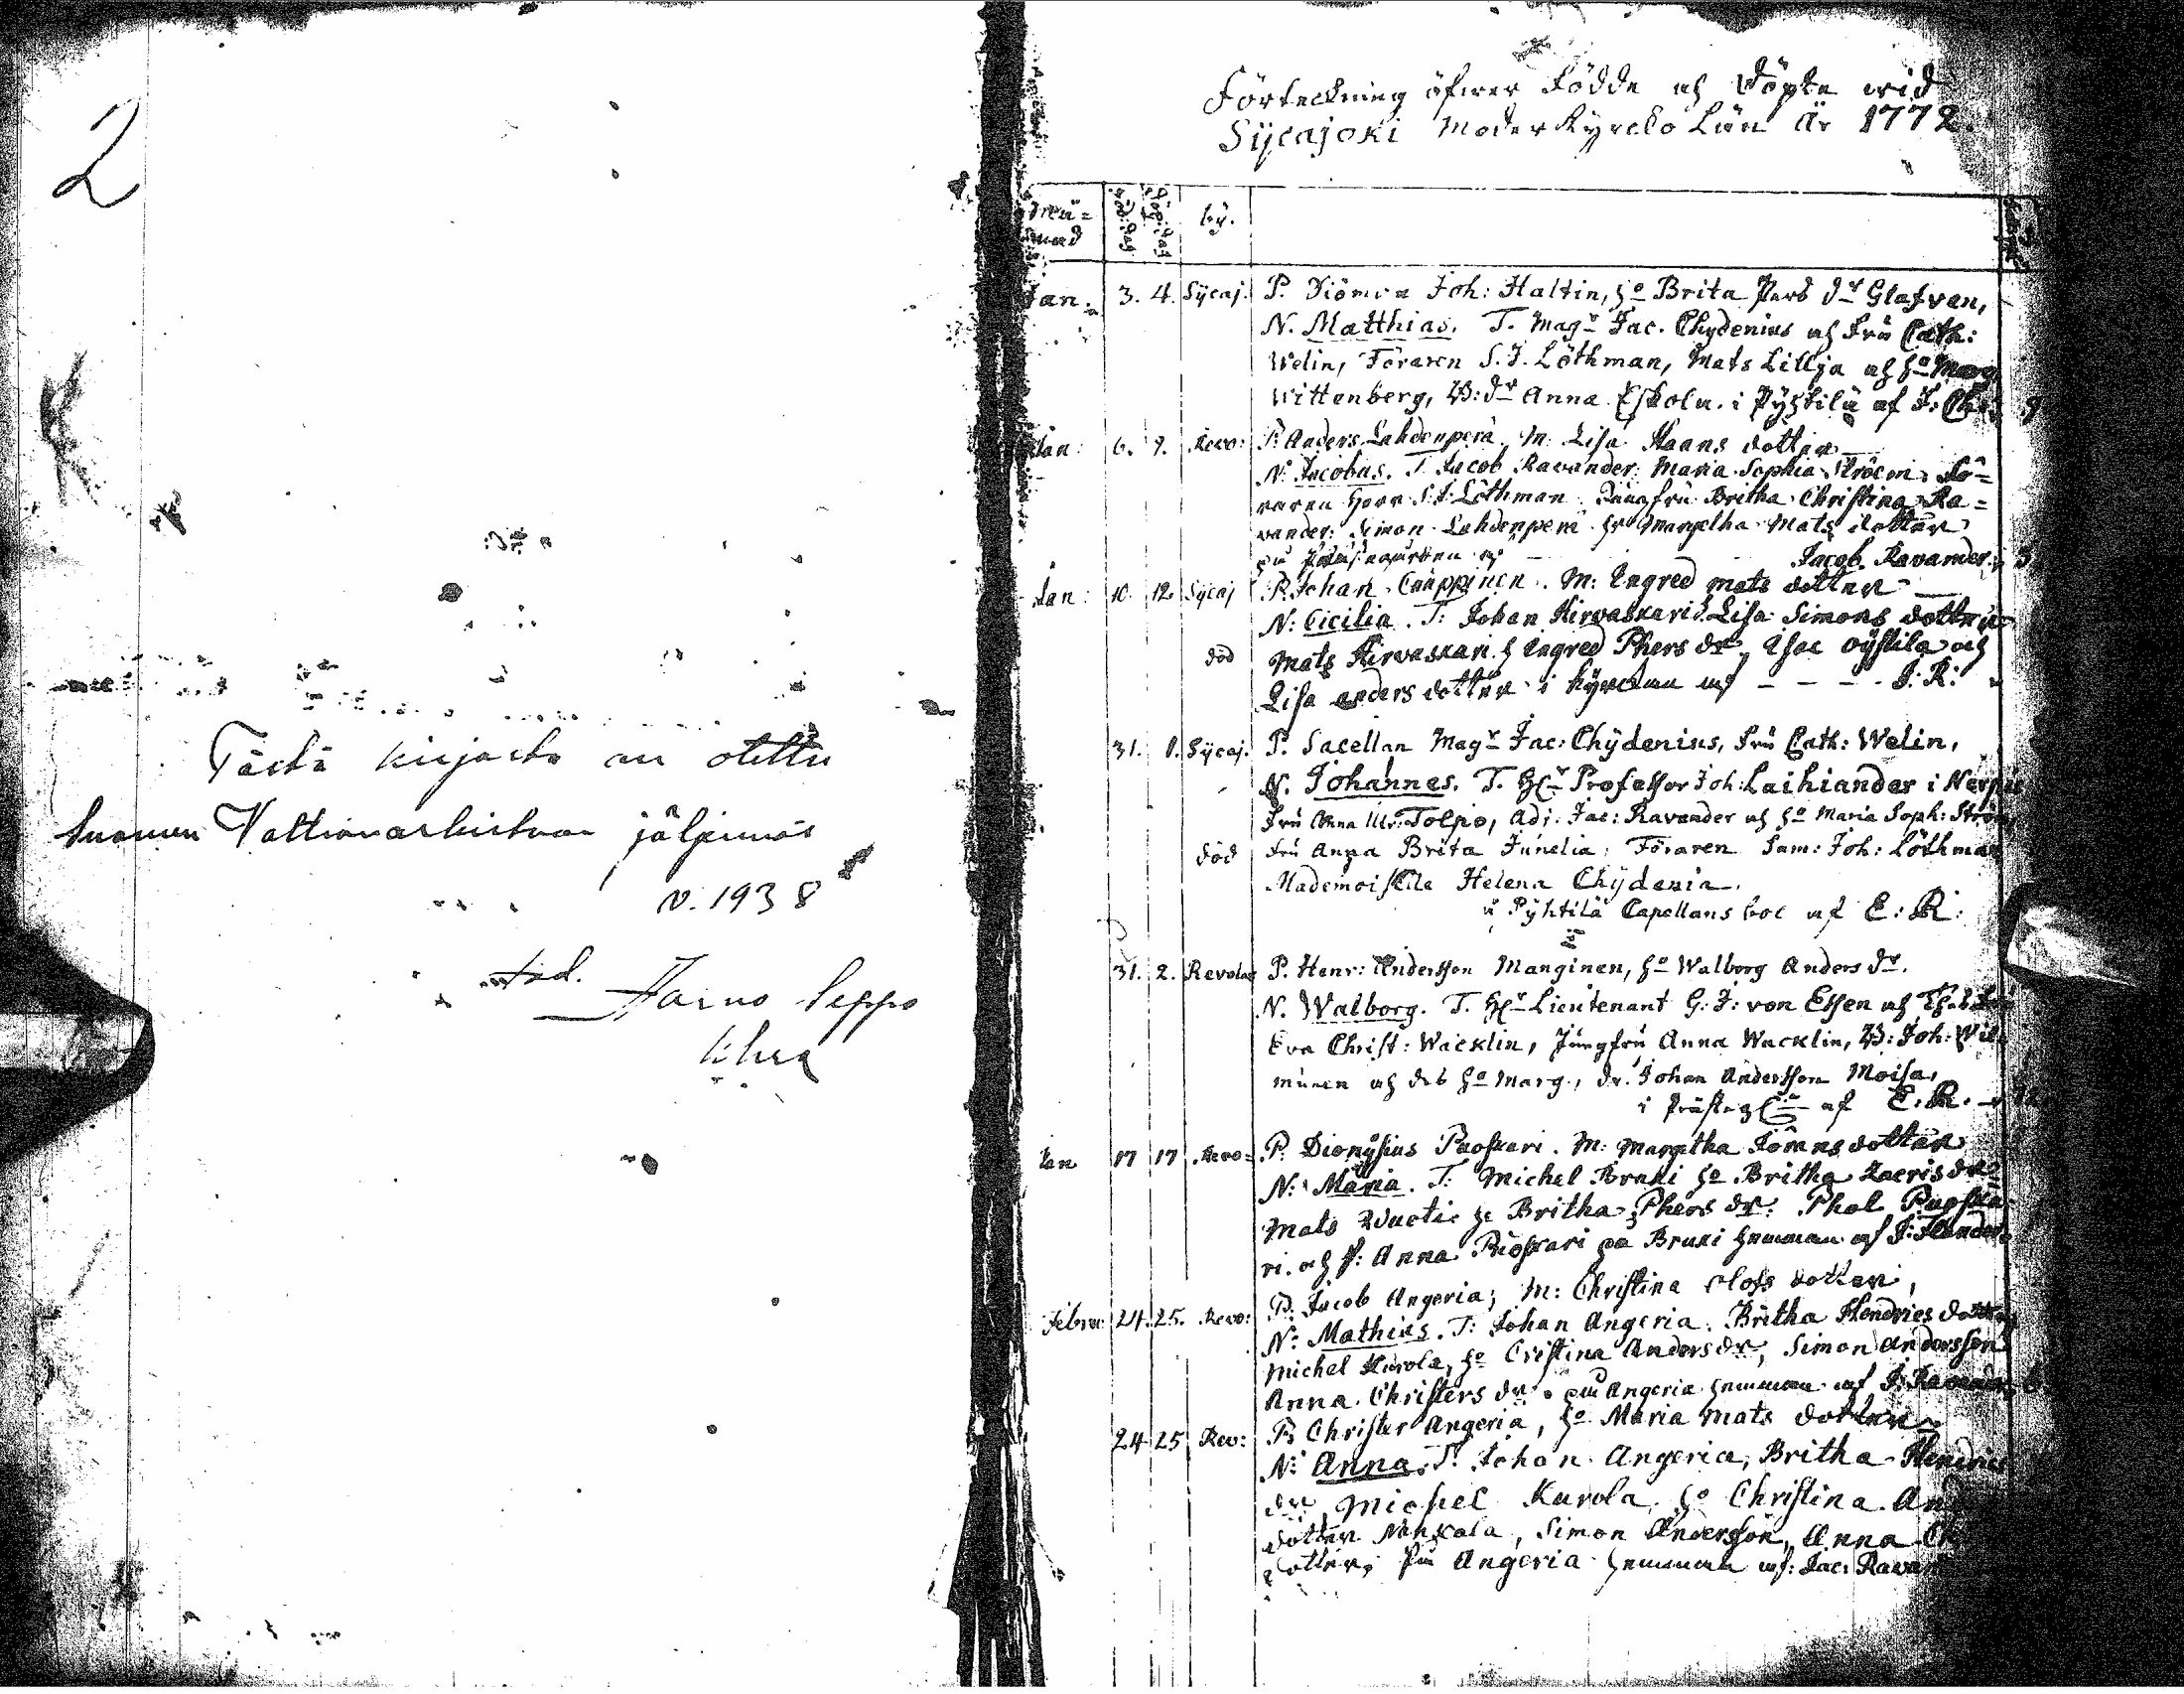 2
Tästä kirjasta on otettu
Suomen Valtionarkistoon jäljennös
v. 1938
tod.
Jarno Seppo
Förteckning öfwer Födde och Döpte wid
Sijcajoki Moder Kyrcko Län År 1772.
Må=
nad
by.
Jan. 3. 4. Sijcaj. P. Joh: Haltin, Ho Brita Pers dr Glafvan,
N. Matthias. T. Magr Jac. Chydenius och Fru Cath:
Welin, Föraren S. J. Löthman, Mats Lillja och Ho Marg
Wittenberg, dr Anna Eskola i af J: Ch
Jan: 6. 9. Revo: P. Anders Lahdenperä. M: Lisa Staans dotter
N: Jacobus. T: Jacob Ravander: Maria Sophia Ström: Fö=
raren Herr S: J: Löthman Jungfru Britha Christina Ra=
vander: Simon Lahdenperä Margetha Mats dotter
Jacob Ravander:
Jan: 10. 12. Sijcaj P. Johan M: Engred Mats dotter
N: Cicilia. T: Johan Kirvaskari Lisa Simons dotter
död Mats Kirvaskari Engred Phers dr Isac och
Lisa Anders dotter i Kyrckan af - - - - J: R:
31. 1. Sijcaj. P. Sacellan Magr Jac: Chydenius, Fru Cath: Welin,
N. Johannes. T. Hr Professor Joh: Laihiander i
Fru Anna Tolpo, Adj. Jac: Ravander och Ho Maria Soph: Ström
död Fru Anna Brita Junelia, Föraren Sam: Joh: Löthman
Mademoiselle Helena Chydenia.
å Pyhtilä Capellans bol af E: R:
31. 2. Revolax P. Henr: Andersson Manginen, Ho Walborg Anders dr.
N. Walborg. T. Hr Lieutenant G: J: von Essen och
Eva Christ: Wacklin, Jungfru Anna Wacklin, B: Joh:
och des Ho Marg., dr. Johan Andersson Moisa,
i af E: R.
Jan 17 17 Revo= P. Dionysius Puoskari. M: Margetha Jörans dotter
N: Maria. T: Michel Bruki Ho Britha Zacris dr
Mats Britha Phers dr: Phol Puoska-
ri och P: Anna Puoskari på Bruki hemman af J:
Febru: 24. 25. Revo: P. Jacob Angeria; M: Christina Olofs dotter,
N: Mathias. T: Johan Angeria. Britha Hendrics dotter
Michel Karola, Ho Cristina Anders dr, Simon Andersson
Anna Christers dr på Angeria hemman af J: Ravander
24 25 Rev: P. Christer Angeria, Ho Maria Mats dotter
N: Anna. T: Johan Angeria, Britha Hendrics
dr Michel Karola Ho Christina
dotter Simon Andersson, Anna
dotter; på Angeria hemman af: Jac: